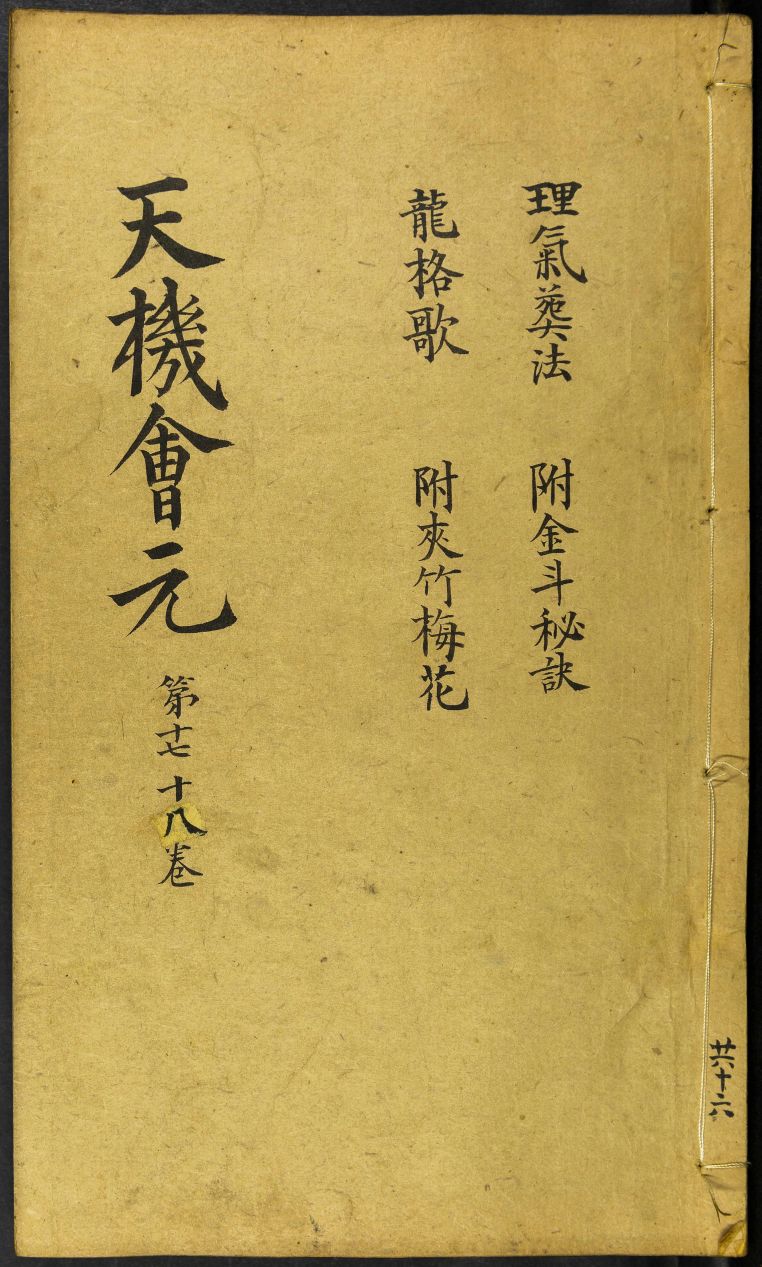 理氣葬法 附金斗秘訣
龍格歌 附夾竹梅花
天機會元 第十七十八卷
共十六